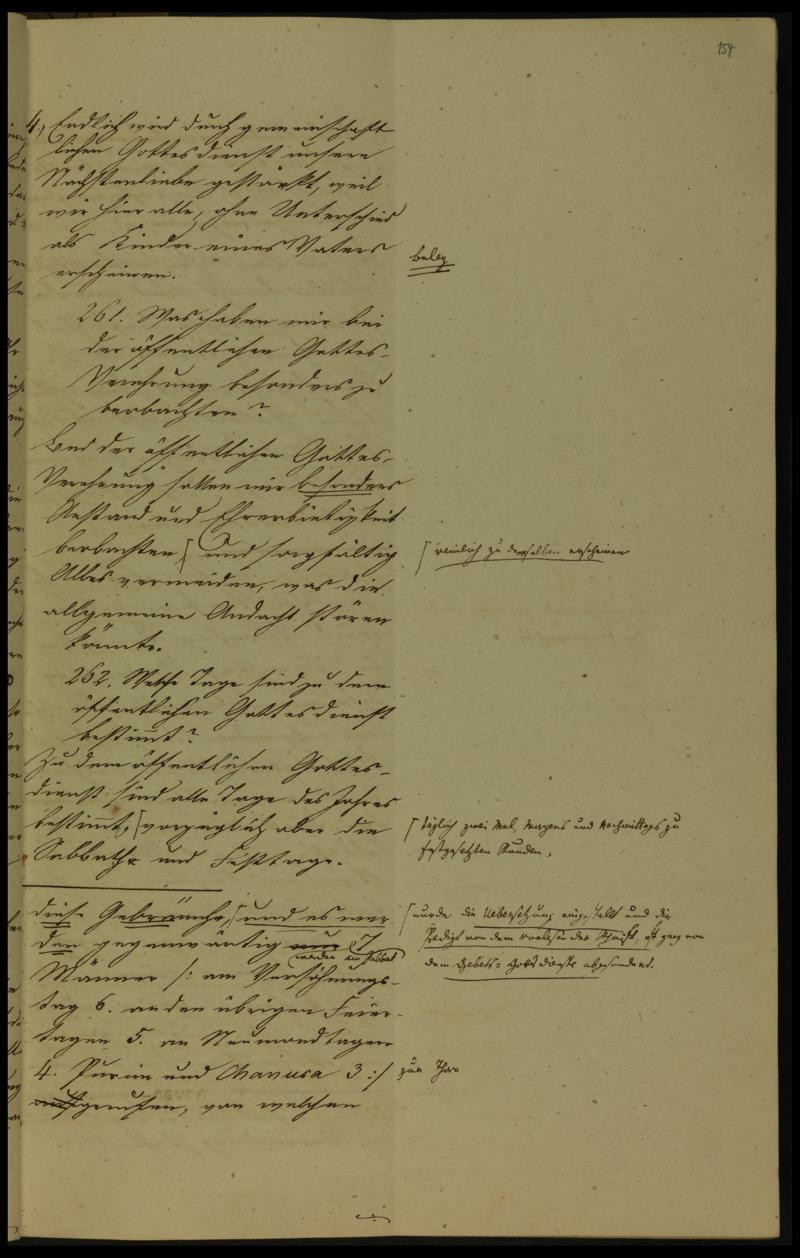 154
4., Endlich wird durch gemeinschaft
lichen Gottesdienst unsere
Nächstenliebe gestärkt, weil
wir hier alle, ohne Unterschied
als Kinder eines Vaters
erscheinen.
beleg
261. Was haben wir bei
der öffentlichen Gottes-
Verehrung besonders zu
beobachten?
Bei der öffentlichen Gottes-
Verehrung sollen wir besonders
Anstand und Ehrerbietigkeit
beobachten [ und sorgfältig
[ reinlich zu derselben erscheinen
Alles vermeiden, was die
allgemeine Andacht stören
könnte.
262. Welche Tage sind zu dem
öffentlichen Gottesdienst
bestimt?
Zu dem öffentlichen Gottes-
dienst sind alle Tage des Jahres
bestimt, [ vorzüglich aber die
Sabbath und Festtage.
[ täglich zwei Mal, Morgens und Nachmittags zu
festgesetzten Stunden,
diese Gebräuche, [ und es wer
den gegenwärtig nur 7
werden am Sabbat
Männer /: am Versöhnungs-
tag 6. an den übrigen Feier-
tagen 5. an Neumondtagen
4. Purim und Chanuca 3 :/
aufgerufen, von welchen
[ wurde die Uebersetzung eingestellt und die
Predigt von dem Vorlesen der Schrift, oft ganz von
dem Gebets-Gottesdienste abgesondert.
zur Thora